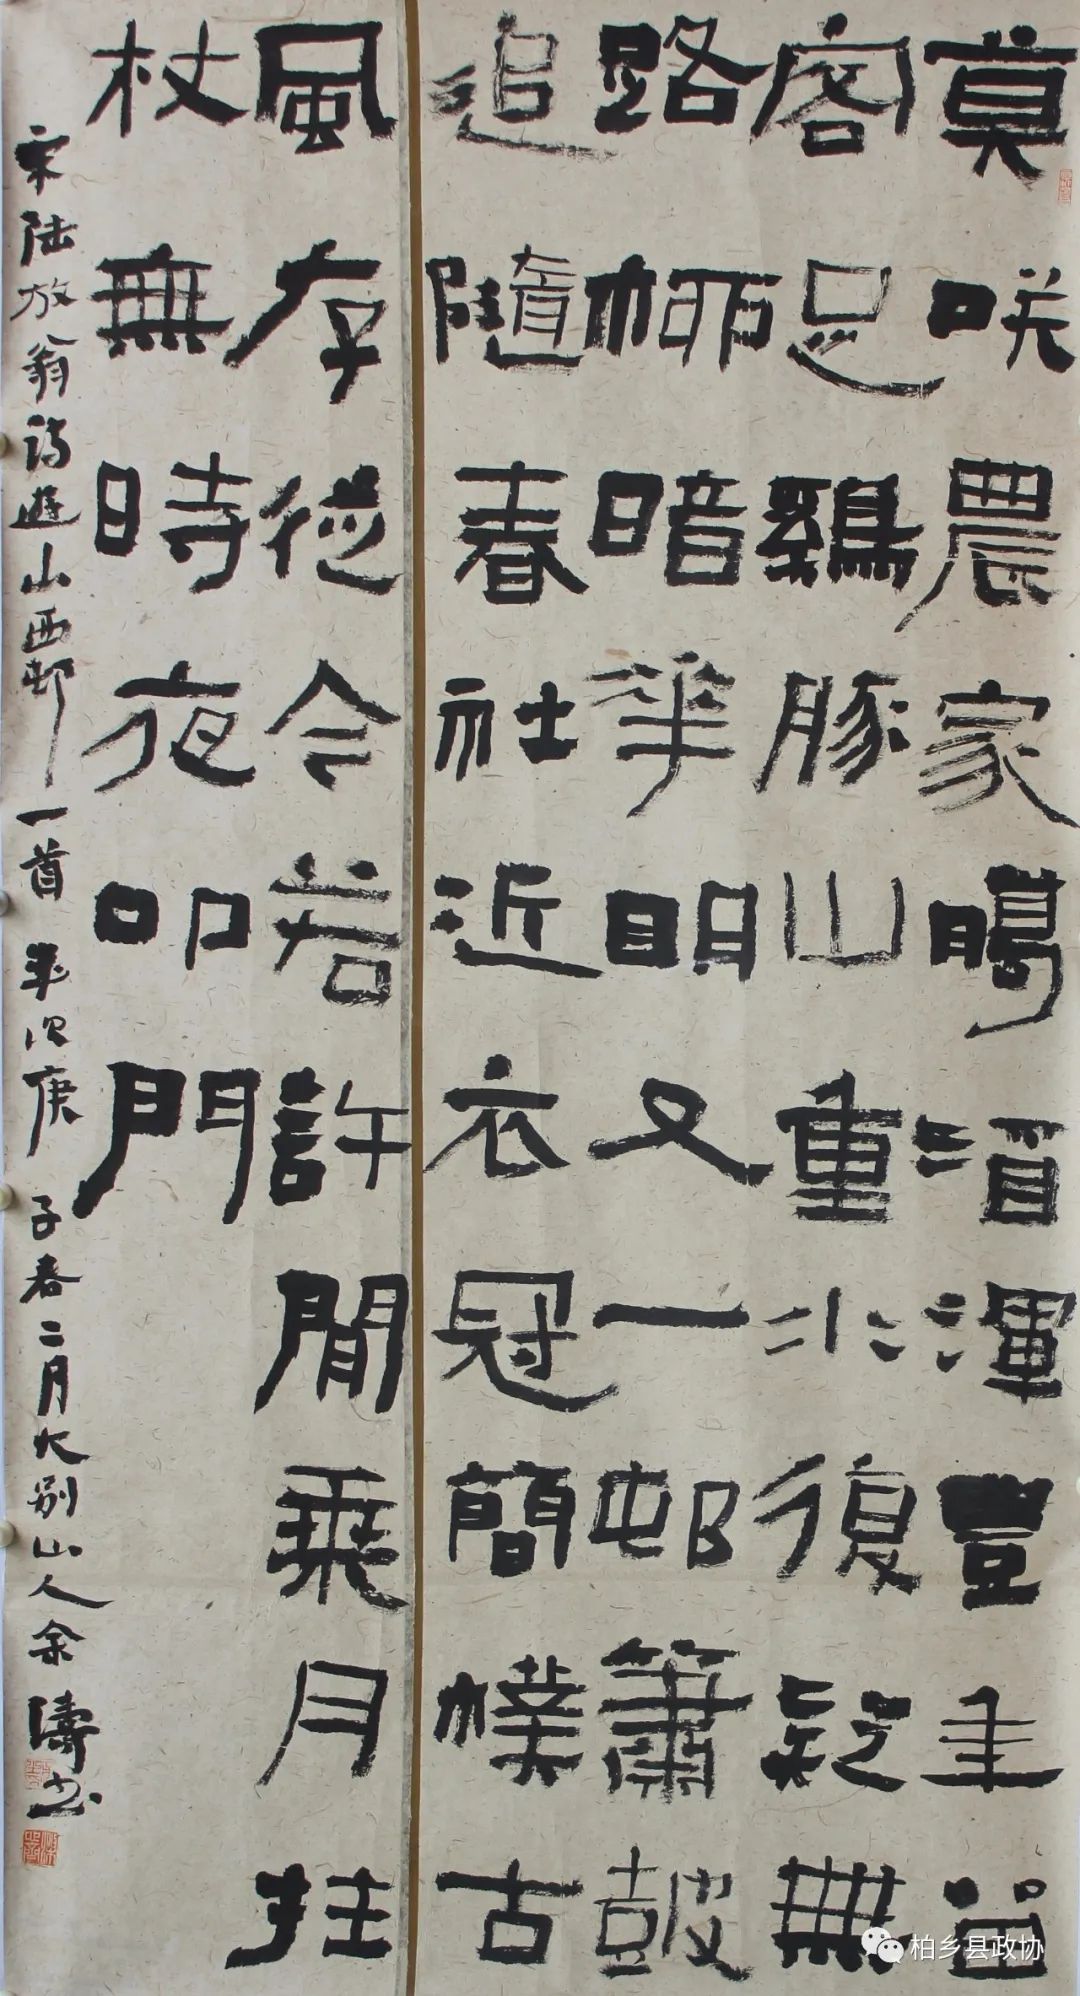 莫咲農家臈酒渾豐年留
客足鷄豚山重水復疑無
路柳暗華眀又一邨簫鼓
追隨春社近衣冠簡樸古
風存從今若許閒乘月拄
杖無時夜叩門
宋陸放翁詩遊山西邨一首 年次庚子春二月大別山人余濤书
柏乡县政协